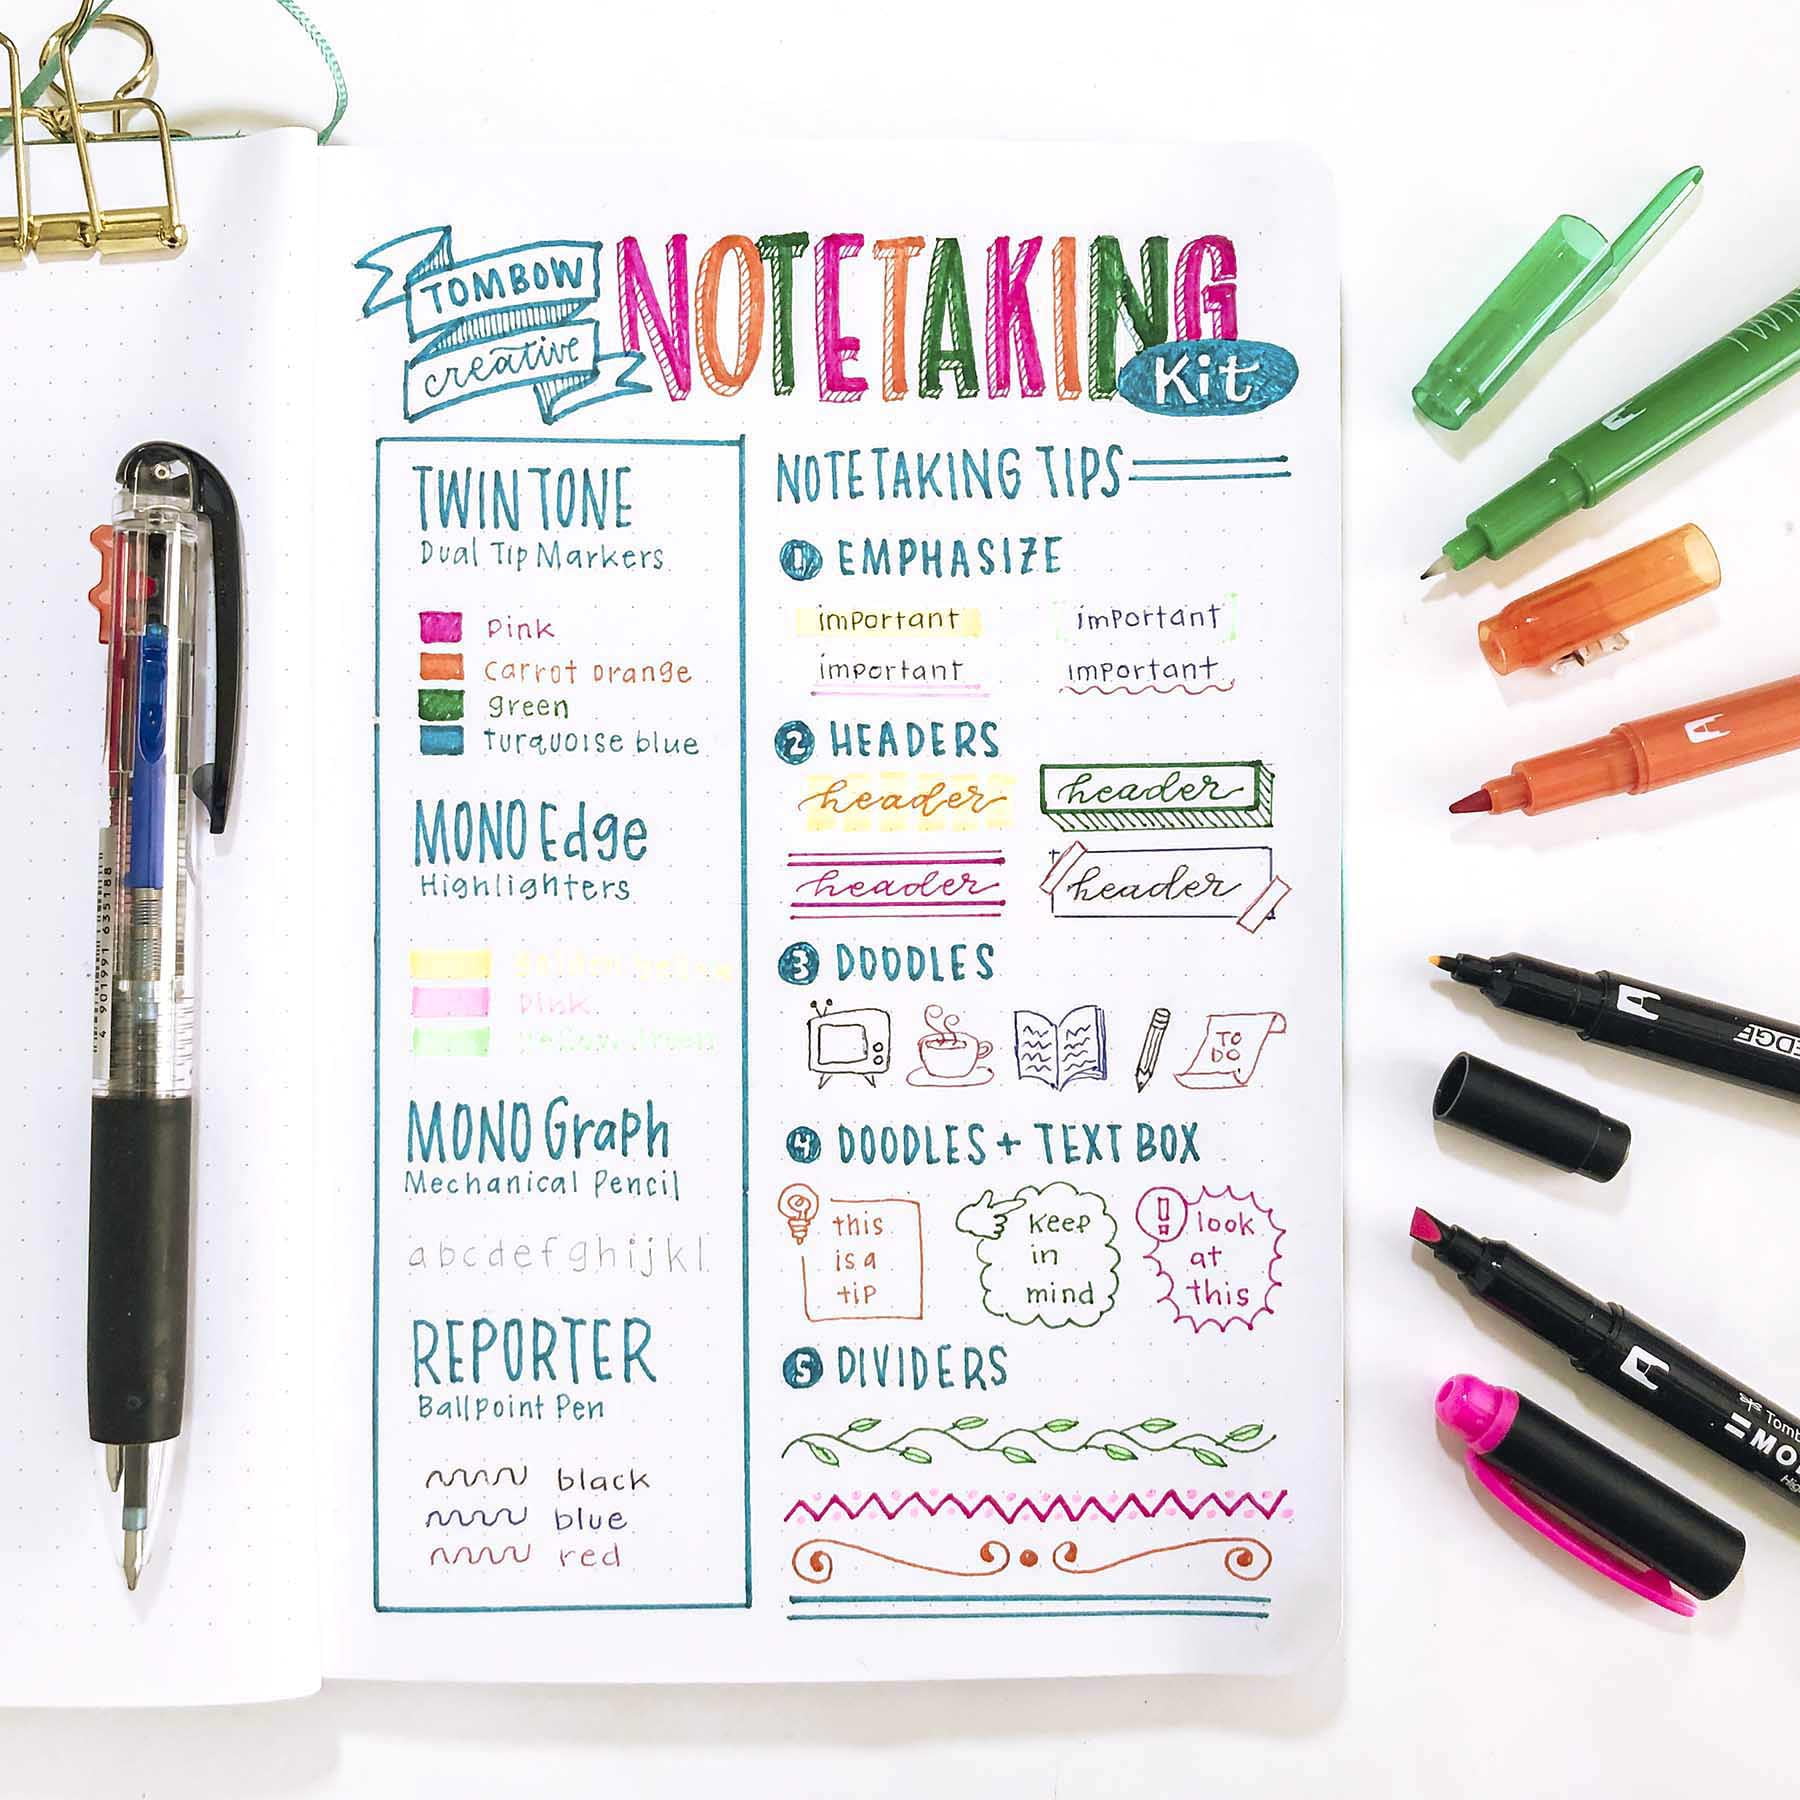 TOMBOW
creative
NOTETAKING
Kit
TWINTONE
Dual Tip Markers
pink
carrot orange
green
turquoise blue
MONO Edge
Highlighters
golden yellow
pink
yellow green
MONO Graph
Mechanical Pencil
abcdefghijkl
REPORTER
Ballpoint Pen
black
blue
red
NOTETAKING TIPS
1 EMPHASIZE
important important
important important
2 HEADERS
header header
header header
3 DOODLES
TO
DO
4 DOODLES + TEXT BOX
this
is a
tip
keep
in
mind
! look
at
this
5 DIVIDERS
4 901991 635188
EDGE
Tomb
MO